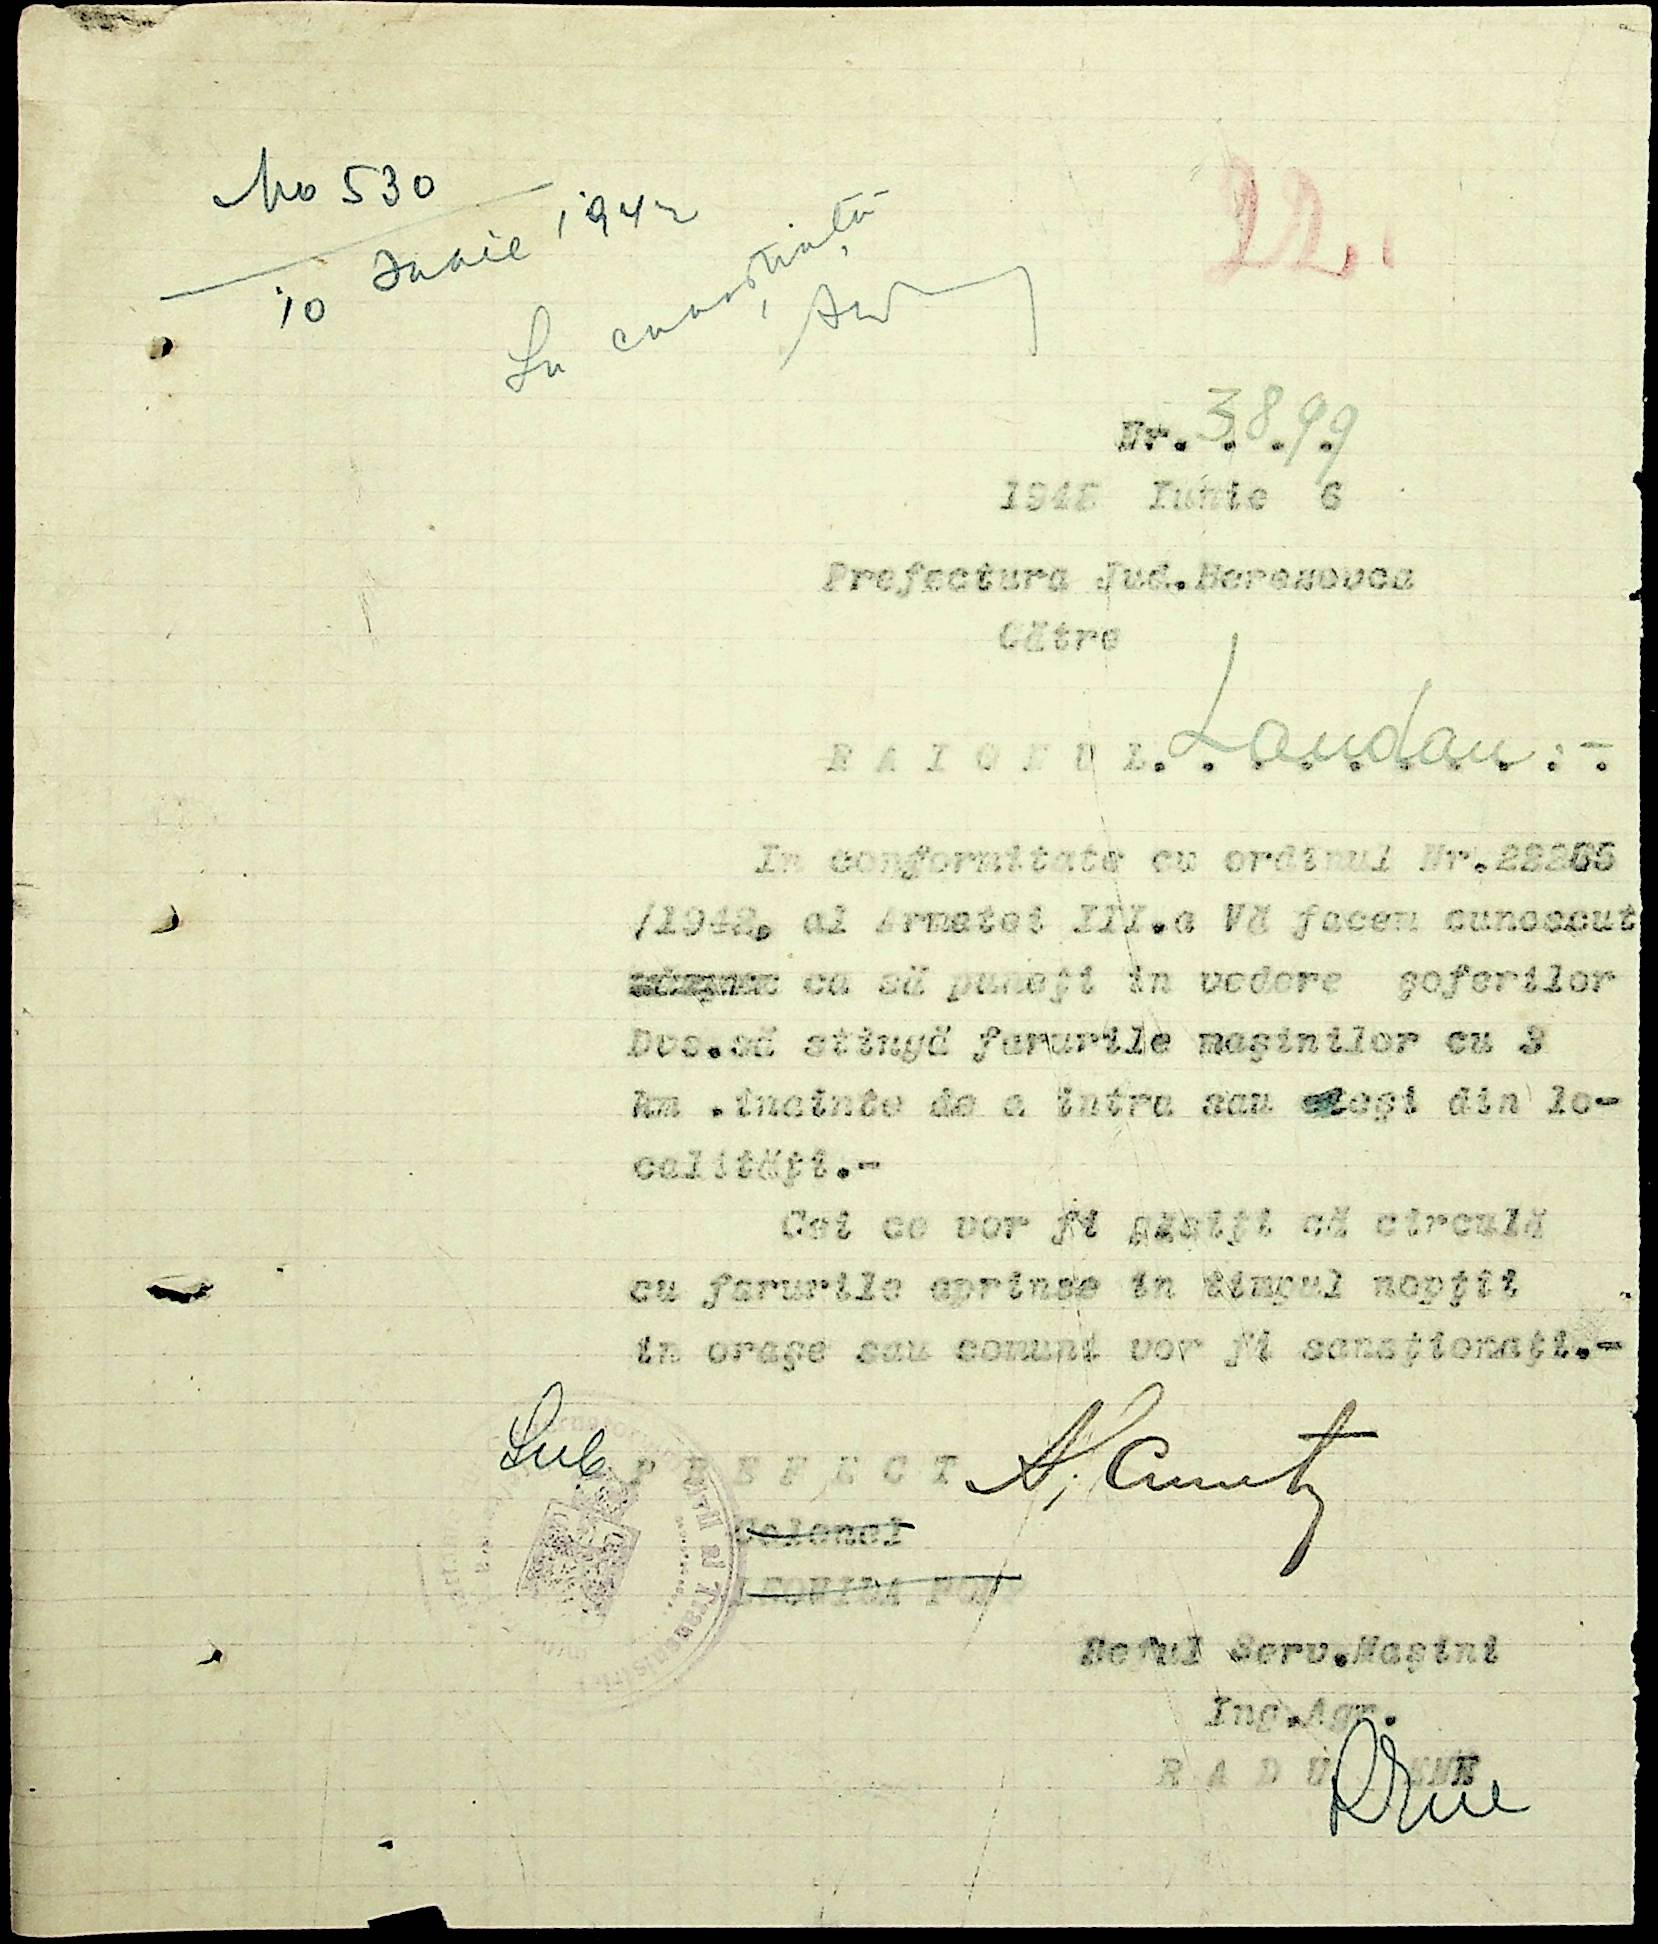 No 530
10 Iunie 1942
La cunoștință
22.
Nr. 3899
1942 Iunie 6
Prefectura Jud.Berezovca
Către
R A I O N U L. Landau :-
In conformitate cu ordinul Nr.28265
/1942. al Armatei III.a Vă facem cunoscut
ca să puneţi in vedere şoferilor
Dvs.să stingă farurile maşinilor cu 3
km .inainte de a intra sau ieşi din lo-
calităţi.-
Cei ce vor fi găsiţi să circulă
cu farurile aprinse in timpul nopţii
in oraşe sau comuni vor fi sancţionaţi.-
Sub P R E F E C T
Colonel
LEONIDA POP
Seful Serv.Maşini
Ing.Agr.
R A D U